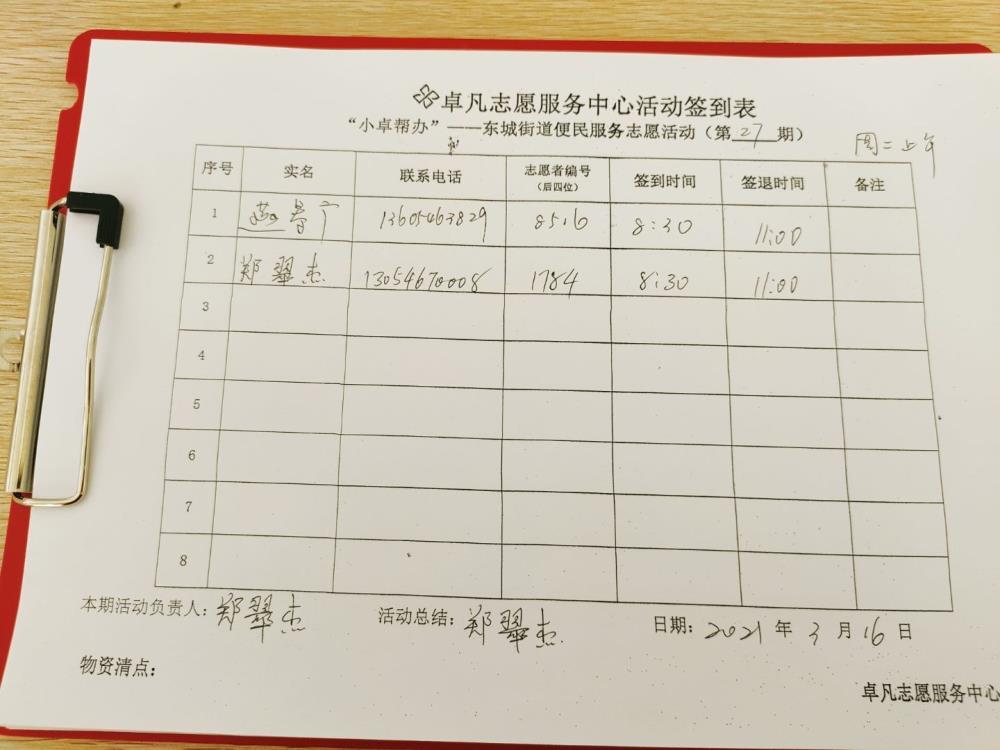 卓凡志愿服务中心活动签到表
“小卓帮办”——东城街道便民服务志愿活动（第27期）
周二上午
序号 实名 联系电话 志愿者编号（后四位） 签到时间 签退时间 备注
1 13605463829 8516 8:30 11:00
2 郑翠杰 13054670008 1784 8:30 11:00
3
4
5
6
7
8
本期活动负责人：郑翠杰 活动总结：郑翠杰 日期：2021年3月16日
物资清点：
卓凡志愿服务中心